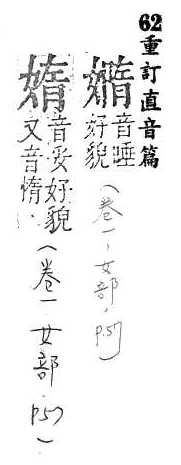 62重訂直音篇
嫷音唾
好貌
（卷一，女部，P.57）
媠音妥好貌
又音惰．
（卷一 女部．P.57）